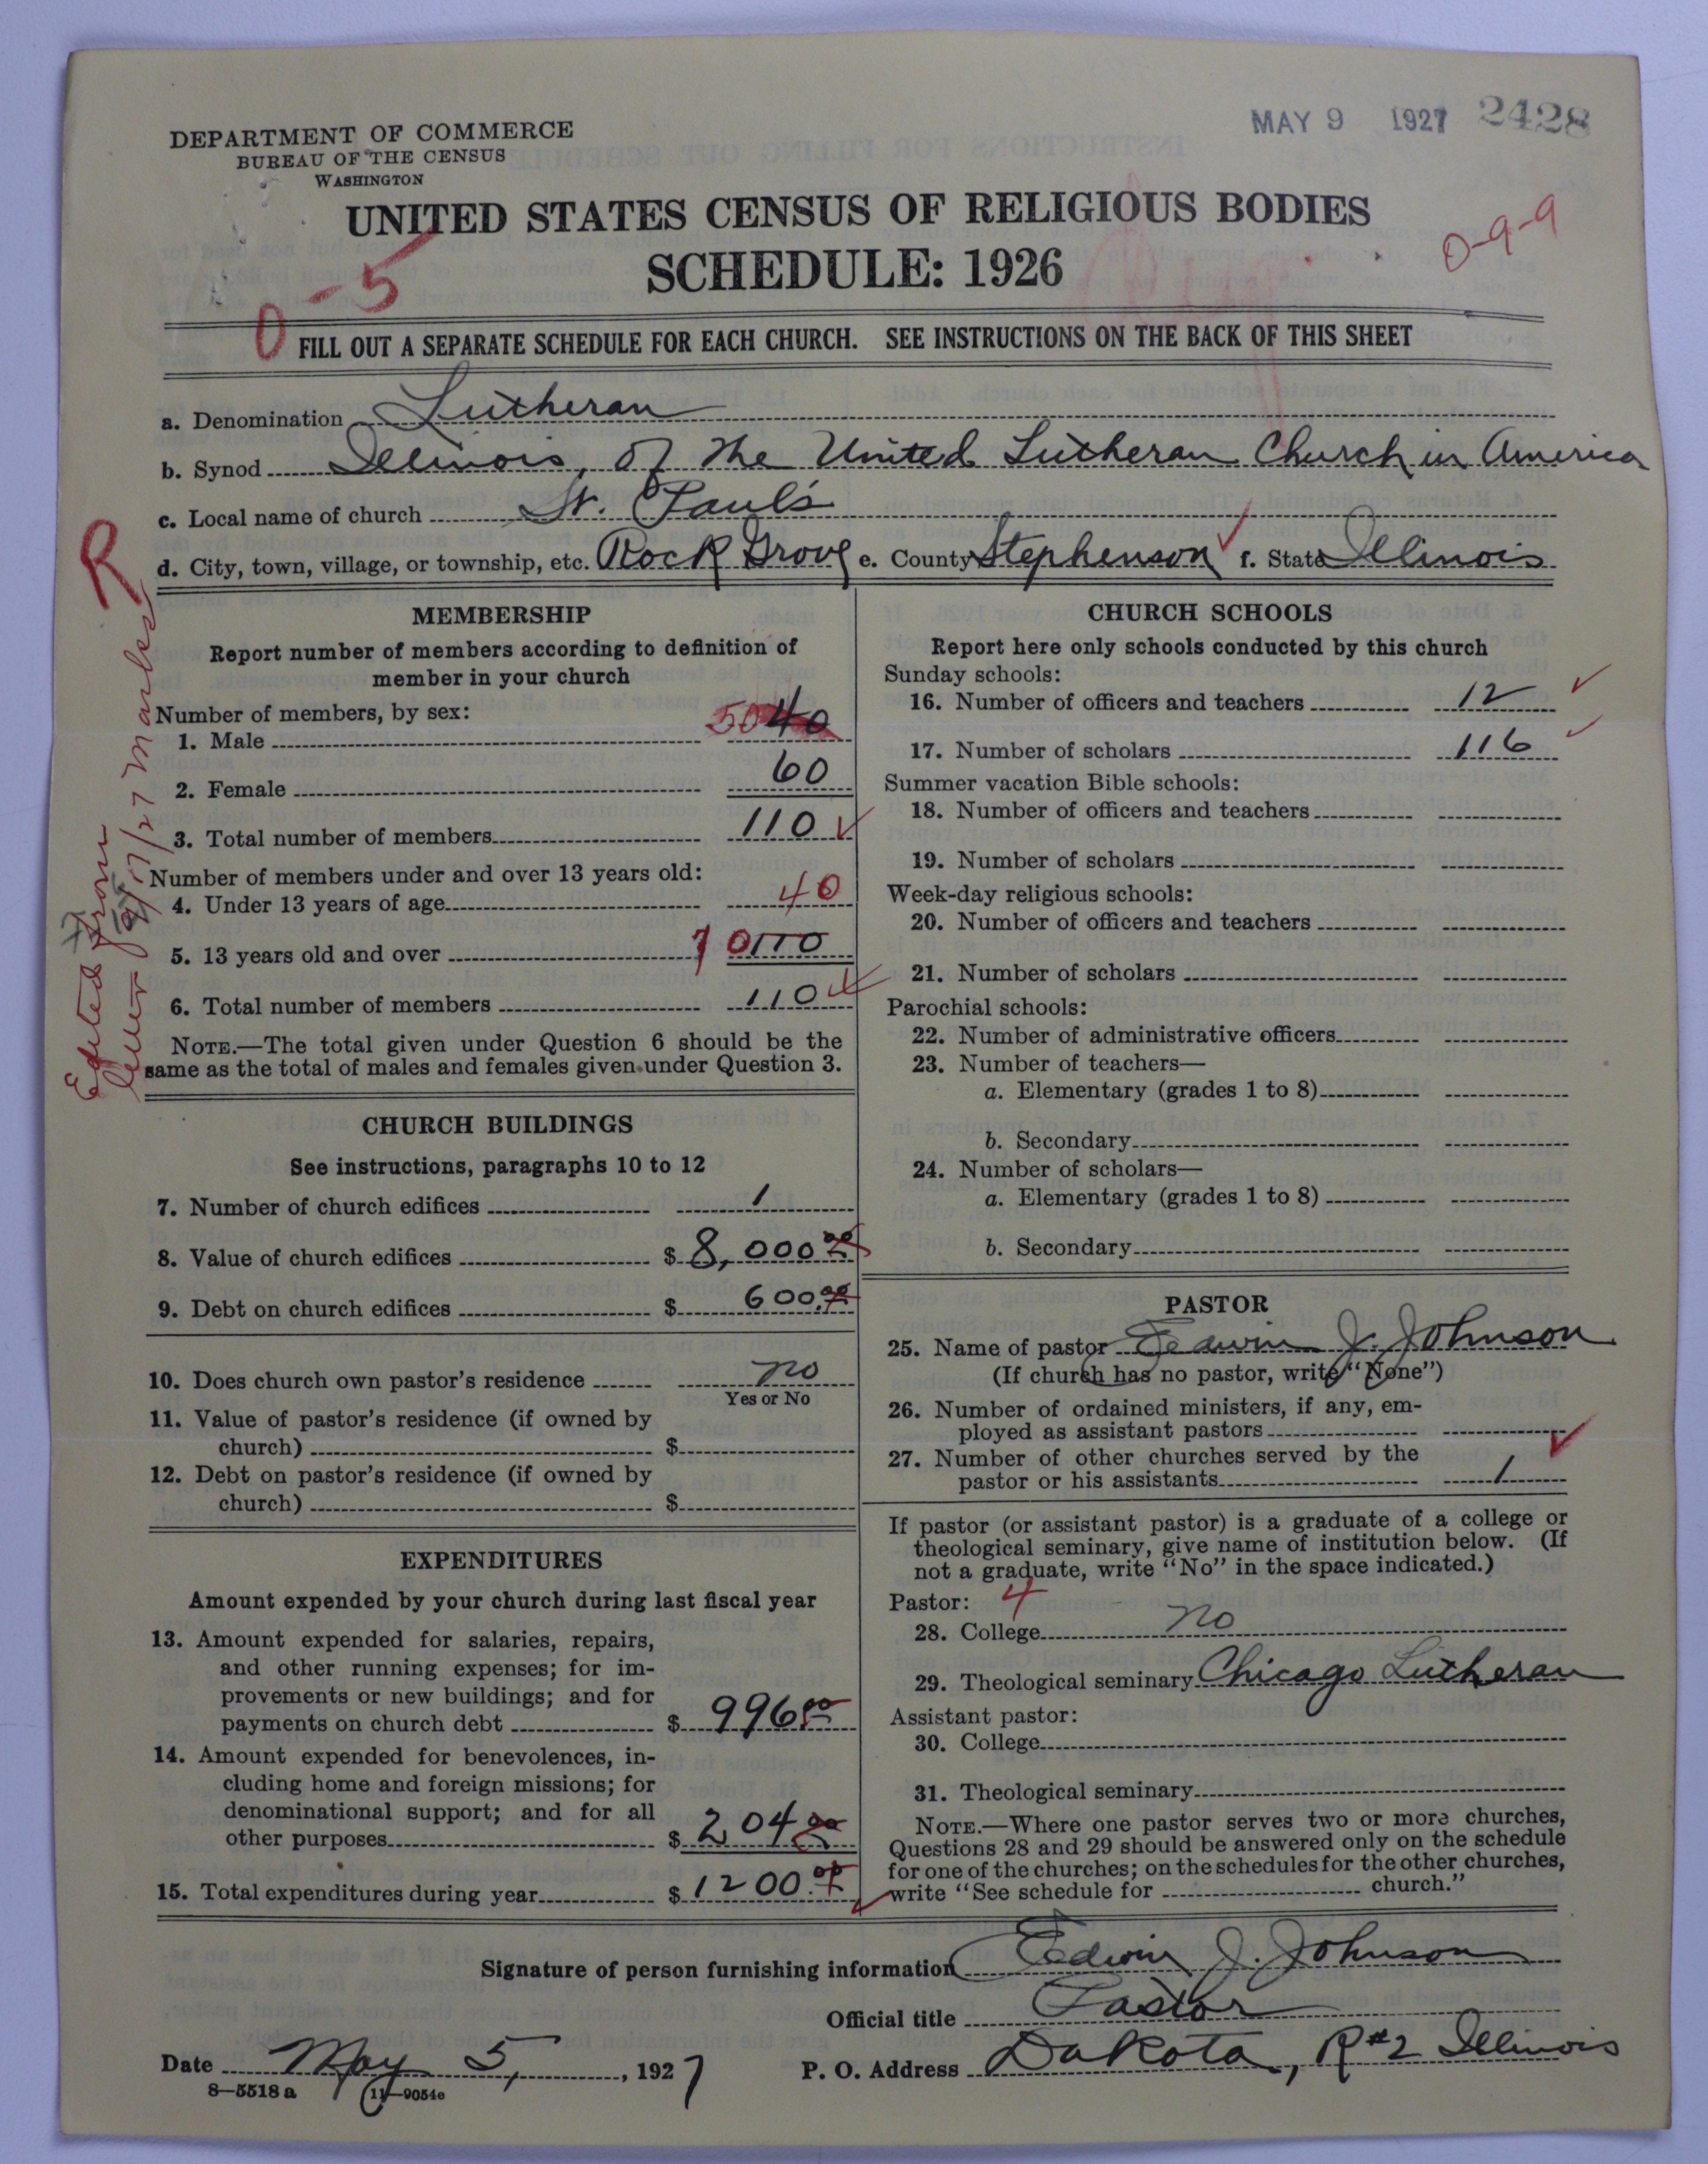 MAY 9 1927 2428
DEPARTMENT OF COMMERCE
BUREAU OF THE CENSUS
WASHINGTON
UNITED STATES CENSUS OF RELIGIOUS BODIES
SCHEDULE: 1926
0-9-9
0-5
FILL OUT A SEPARATE SCHEDULE FOR EACH CHURCH. SEE INSTRUCTIONS ON THE BACK OF THIS SHEET
a. Denomination Lutheran
b. Synod Illinois, of the United Lutheran Church in America
c. Local name of church St. Paul's
d. City, town, village, or township, etc. Rock Grove e. County Stephenson f. State Illinois
R
Edited from
letter 7/27 Marked
MEMBERSHIP
Report number of members according to definition of
member in your church
Number of members, by sex:
1. Male 50 40
2. Female 60
3. Total number of members 110
Number of members under and over 13 years old:
4. Under 13 years of age 40
5. 13 years old and over 70 110
6. Total number of members 110
NOTE.—The total given under Question 6 should be the
same as the total of males and females given under Question 3.
CHURCH BUILDINGS
See instructions, paragraphs 10 to 12
7. Number of church edifices 1
8. Value of church edifices $ 8,000.00
9. Debt on church edifices $ 600.00
10. Does church own pastor's residence no
Yes or No
11. Value of pastor's residence (if owned by
church) $
12. Debt on pastor's residence (if owned by
church) $
EXPENDITURES
Amount expended by your church during last fiscal year
13. Amount expended for salaries, repairs,
and other running expenses; for im-
provements or new buildings; and for
payments on church debt $ 996.00
14. Amount expended for benevolences, in-
cluding home and foreign missions; for
denominational support; and for all
other purposes $ 204.00
15. Total expenditures during year $ 1200.00
CHURCH SCHOOLS
Report here only schools conducted by this church
Sunday schools:
16. Number of officers and teachers 12
17. Number of scholars 116
Summer vacation Bible schools:
18. Number of officers and teachers
19. Number of scholars
Week-day religious schools:
20. Number of officers and teachers
21. Number of scholars
Parochial schools:
22. Number of administrative officers
23. Number of teachers—
a. Elementary (grades 1 to 8)
b. Secondary
24. Number of scholars—
a. Elementary (grades 1 to 8)
b. Secondary
PASTOR
25. Name of pastor Edwin J. Johnson
(If church has no pastor, write "None")
26. Number of ordained ministers, if any, em-
ployed as assistant pastors
27. Number of other churches served by the
pastor or his assistants 1
If pastor (or assistant pastor) is a graduate of a college or
theological seminary, give name of institution below. (If
not a graduate, write "No" in the space indicated.)
Pastor: 4
28. College no
29. Theological seminary Chicago Lutheran
Assistant pastor:
30. College
31. Theological seminary
NOTE.—Where one pastor serves two or more churches,
Questions 28 and 29 should be answered only on the schedule
for one of the churches; on the schedules for the other churches,
write "See schedule for church."
Signature of person furnishing information Edwin J. Johnson
Official title Pastor
Date May 5, 1927 P. O. Address Dakota, R#2 Illinois
8—5518 a 11—9054e